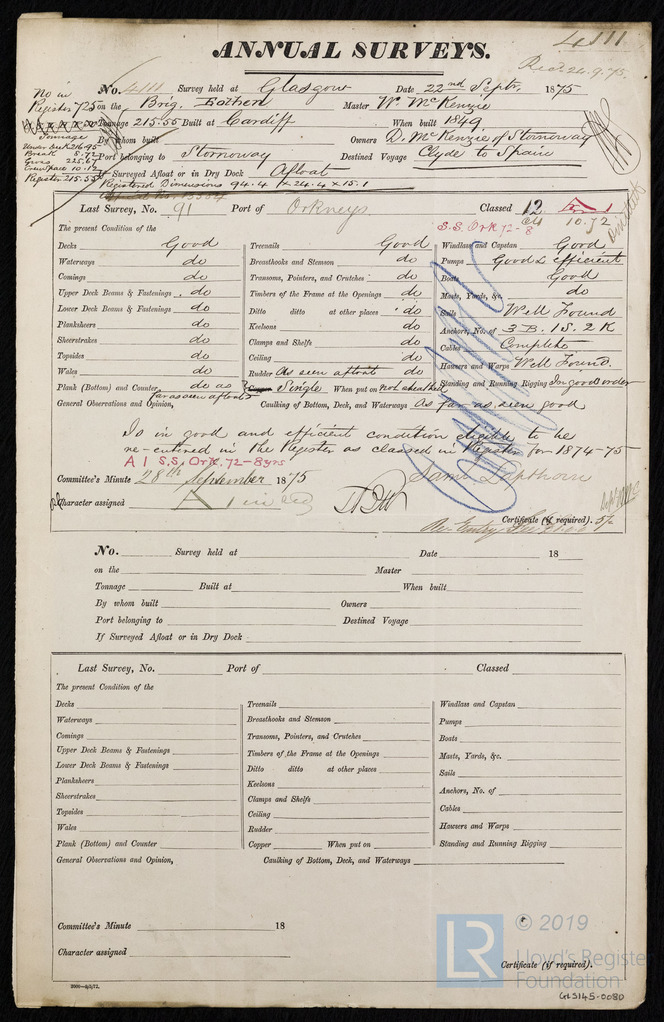 4111
ANNUAL SURVEYS.
Recd 24.9.75
No. 4111 Survey held at Glasgow Date 22nd Septr. 1875
No in Register 725
on the Brig. Eothen Master W. McKenzie
Tonnage 215.55 Built at Cardiff When built 1849
Tonnage
Under Deck 216.95
Break 8.72
Gross 225.67
Crew Space 10.12
Register 215.55
By whom built Owners D. McKenzie of Stornoway
Port belonging to Stornoway Destined Voyage Clyde to Spain
If Surveyed Afloat or in Dry Dock Afloat
Registered Dimensions 94.4 x 24.4 x 15.1
Last Survey, No. 91 Port of Orkneys Classed 12 A 1
S.S. Ork 72-8 10.72
The present Condition of the
Decks Good Treenails Good Windlass and Capstan Good
Waterways do Breasthooks and Stemson do Pumps Good & efficient
Comings do Transoms, Pointers, and Crutches do Boats Good
Upper Deck Beams & Fastenings do Timbers of the Frame at the Openings do Masts, Yards, &c. do
Lower Deck Beams & Fastenings do Ditto ditto at other places do Sails Well Found
Planksheers do Keelsons do Anchors, No. of 3 B. 1 S. 2 K
Sheerstrakes do Clamps and Shelfs do Cables Complete
Topsides do Ceiling do Hawsers and Warps Well Found.
Wales do Rudder As seen afloat do Standing and Running Rigging In good order
Plank (Bottom) and Counter do as far as seen afloat Single When put on not sheathed
General Observations and Opinion, Caulking of Bottom, Deck, and Waterways As far as seen good
Is in good and efficient condition eligible to be
re-entered in the Register as classed in Register for 1874-75
A 1 S.S. Ork. 72-8yrs
Committee's Minute 28th September 1875
Character assigned A 1 in red
Certificate (if required).
Re-Entry Fee
No. Survey held at Date 18
on the Master
Tonnage Built at When built
By whom built Owners
Port belonging to Destined Voyage
If Surveyed Afloat or in Dry Dock
Last Survey, No. Port of Classed
The present Condition of the
Decks Treenails Windlass and Capstan
Waterways Breasthooks and Stemson Pumps
Comings Transoms, Pointers, and Crutches Boats
Upper Deck Beams & Fastenings Timbers of the Frame at the Openings Masts, Yards, &c.
Lower Deck Beams & Fastenings Ditto ditto at other places Sails
Planksheers Keelsons Anchors, No. of
Sheerstrakes Clamps and Shelfs Cables
Topsides Ceiling Hawsers and Warps
Wales Rudder Standing and Running Rigging
Plank (Bottom) and Counter Copper When put on
General Observations and Opinion, Caulking of Bottom, Deck, and Waterways
Committee's Minute 18
Character assigned
Certificate (if required).
LR
© 2019
Lloyd's Register
Foundation
GLS145-0080